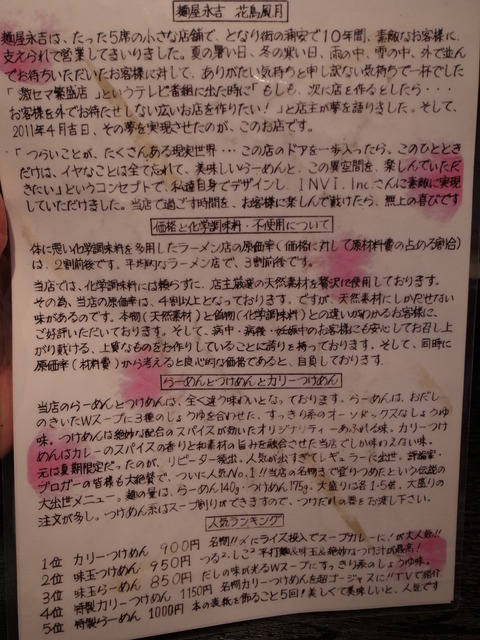 麺屋永吉 花鳥風月
麺屋永吉は、たった5席の小さな店舗で、となり街の浦安で10年間、素敵なお客様に、
支えられて営業してまいりました。夏の暑い日、冬の寒い日、雨の中、雪の中、外で並ん
でお待ちいただいたお客様に対して、ありがたい気持ちと申し訳ない気持ちで一杯でした
「激セマ繁盛店」というテレビ番組に出た時に「もしも、次に店を作るとしたら・・・
お客様を外でお待たせしない広いお店を作りたい!」と店主が夢を語りました。そして、
2011年4月吉日、その夢を実現させたのが、このお店です。
「つらいことが、たくさんある現実世界・・・この店のドアを一歩入ったら、このひととき
だけは、イヤなことは全て忘れて、美味しいらーめんと、この異空間を、楽しんでいただ
きたい」というコンセプトで、私達自身でデザインし、INVI.Inc.さんに素敵に実現
していただけました。当店で過ごす時間を、お客様に楽しんで戴けたら、無上の喜びです
価格と化学調味料・不使用について
体に悪い化学調味料を多用したラーメン店の原価率(価格に対して原材料費の占める割合)
は、2割前後です。平均的なラーメン店で、3割前後です。
当店では、化学調味料には頼らずに、店主厳選の天然素材を贅沢に使用しております。
その為、当店の原価率は、4割以上となっております。ですが、天然素材にしかだせない
味があるのです。本物(天然素材)と偽物(化学調味料)との違いがわかるお客様に、
ご好評いただいております。そして、病中・病後・妊娠中のお客様にも安心してお召し上
がり戴ける、上質なものをお作りしていることに誇りを持っております。そして、同時に
原価率(材料費)から考えると良心的な価格であると、自負しております。
らーめんとつけめんとカリーつけめん
当店のらーめんとつけめんは、全く違う味わいとなっております。らーめんは、おだし
のきいたWスープに3種のしょうゆを合わせた、すっきり系のオーソドックスなしょうゆ
味。つけめんは絶妙な配合のスパイスが効いたオリジナリティーあふれる味。カリーつけ
めんはカレーのスパイスの香りと和素材の旨力を融合させた当店でしか味わえない味。
元は夏期限定だったが、リピーター続出、人気が出すぎてレギュラーに出世。評論家・
ブロガーの皆様も大絶賛で、ついに人気No.1!!当店の名物まで登りつめたという伝説の
大出世メニュー。麺の量は、らーめん140g・つけめん175g。大盛りは各1.5倍。大盛りの
注文が多し。つけめん系はスープ割りができますので、つけだれの器をお渡し下さい。
人気ランキング
1位 カリーつけめん 900円 名物!!〆にライス投入でスープカレーに!が大人気!!
2位 味玉つけめん 950円 つる、しこ2 平打麺&味玉&絶妙なつけ汁が最高!
3位 味玉らーめん 850円 だしの味が光るWスープにすっき系のしょうゆ味。
4位 特製カリーつけめん 1150円 名物カリーつけめんを超ゴージャスに!!TVで紹介
5位 特製らーめん 1000円 本の表紙を飾ること5回!美しくて美味しいと、人気です